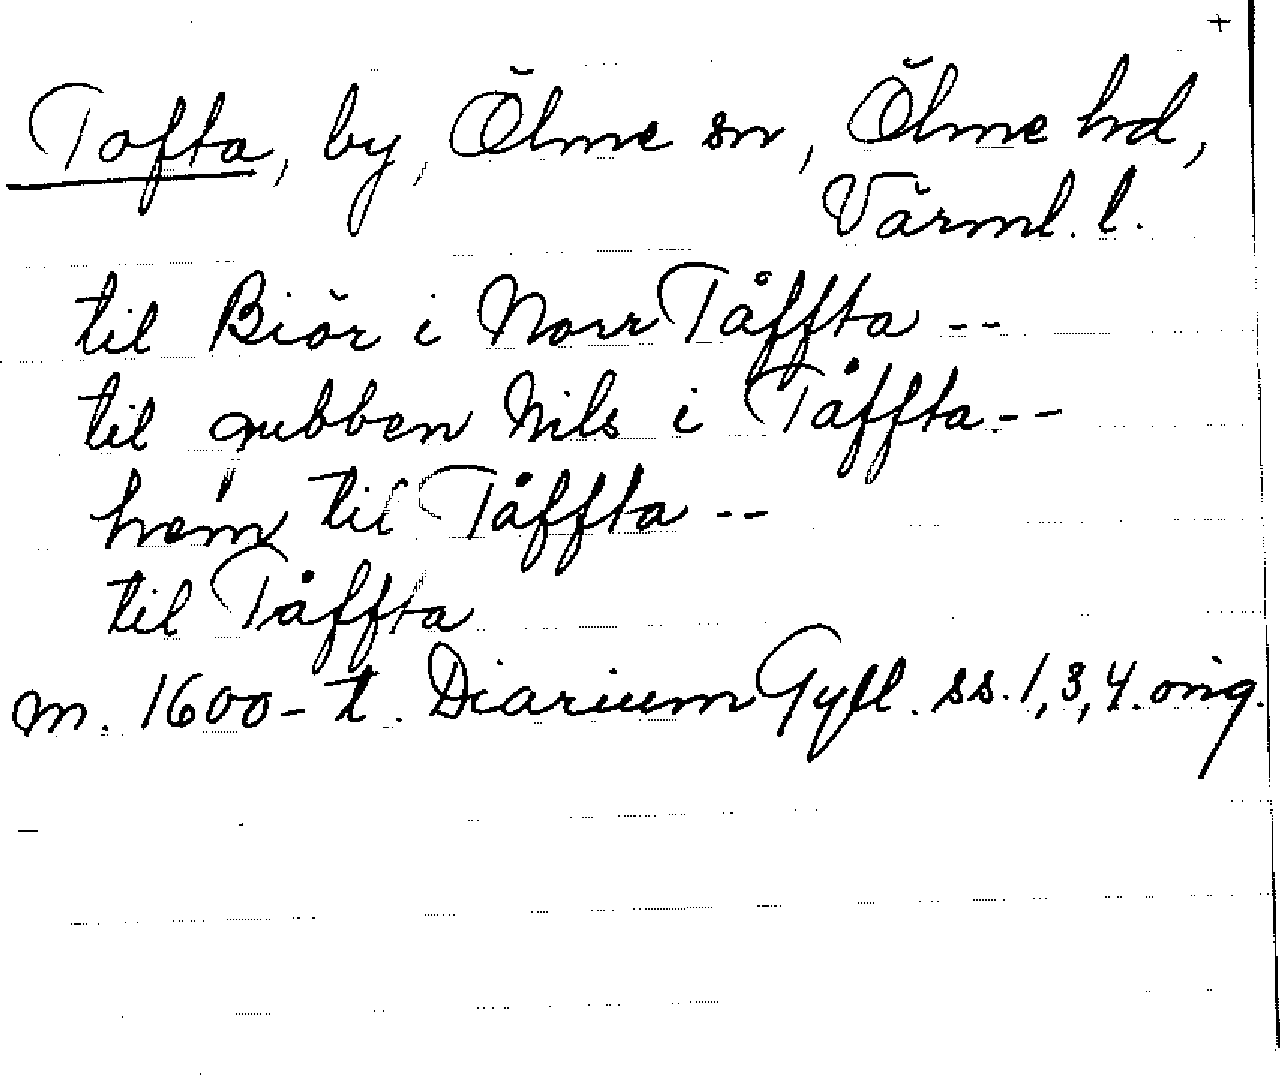 +
Tofta, by, Ölme sn, Ölme hd,
Värml. l.
til Biör i Norr Tåffta --
til gubben Nils i Tåffta --
hem til Tåffta --
til Tåffta
m. 1600-t. Diarium Gyll. ss. 1, 3, 4. orig.